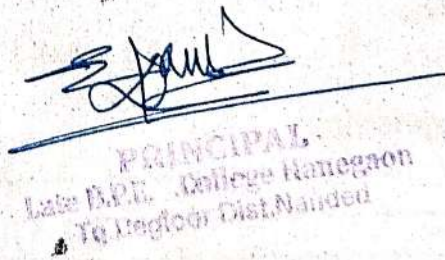 PRINCIPAL
Late B.P.E. College Hanegaon
Tq Degloor Dist. Nanded